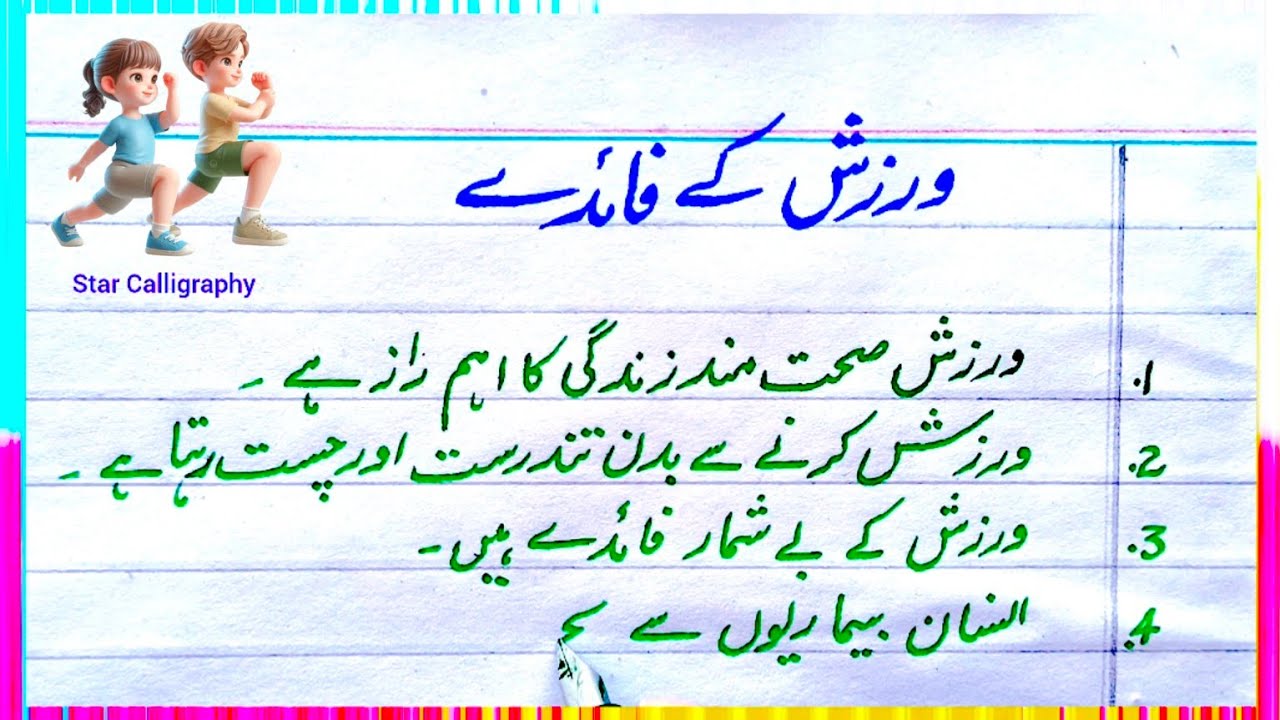 ورزش کے فائدے
Star Calligraphy
1. ورزش صحت مند زندگی کا اہم راز ہے ۔
2. ورزش کرنے سے بدن تندرست اور چست رہتا ہے ۔
3. ورزش کے بے شمار فائدے ہیں ۔
4. انسان بیماریوں سے